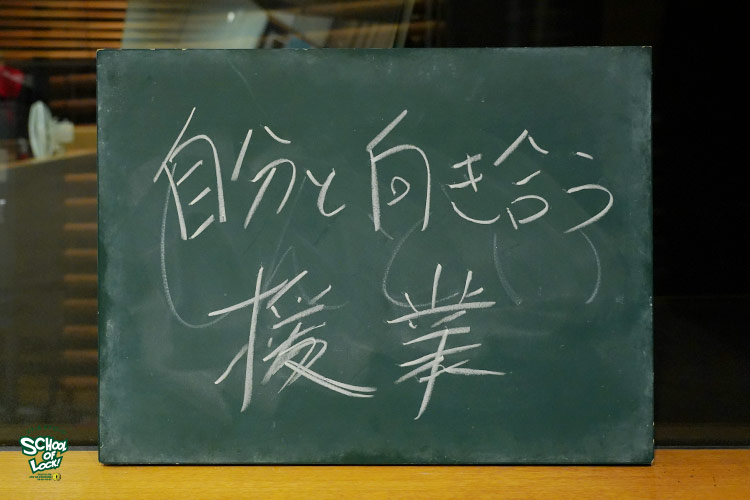 自分と向き合う
授業
SCHOOL
OF
LOCK!